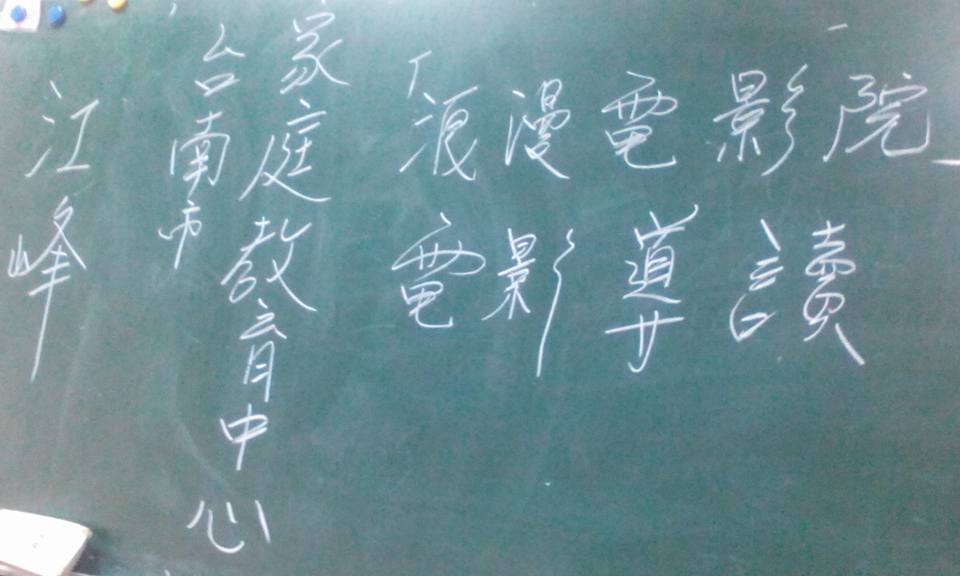 「浪漫電影院」
電影導讀
家庭教育中心
台南市
江峰